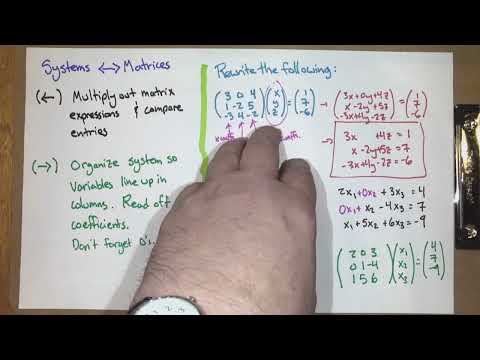 Systems ↔ Matrices
(←) Multiply out matrix
expressions & compare
entries
(→) Organize system so
variables line up in
columns. Read off
coefficients.
Don't forget 0's.
Rewrite the following:
(3 0 4; 1 -2 5; -3 4 -2)(x; y; z) = (1; 7; -6) → (3x+0y+4z; x-2y+5z; -3x+4y-2z) = (1; 7; -6)
→ 3x +4z = 1
x -2y+5z = 7
-3x+4y-2z = -6
2x₁ +0x₂ + 3x₃ = 4
0x₁+ x₂ - 4x₃ = 7
x₁ + 5x₂ + 6x₃ = -9
(2 0 3; 0 1 -4; 1 5 6)(x₁; x₂; x₃) = (4; 7; -9)